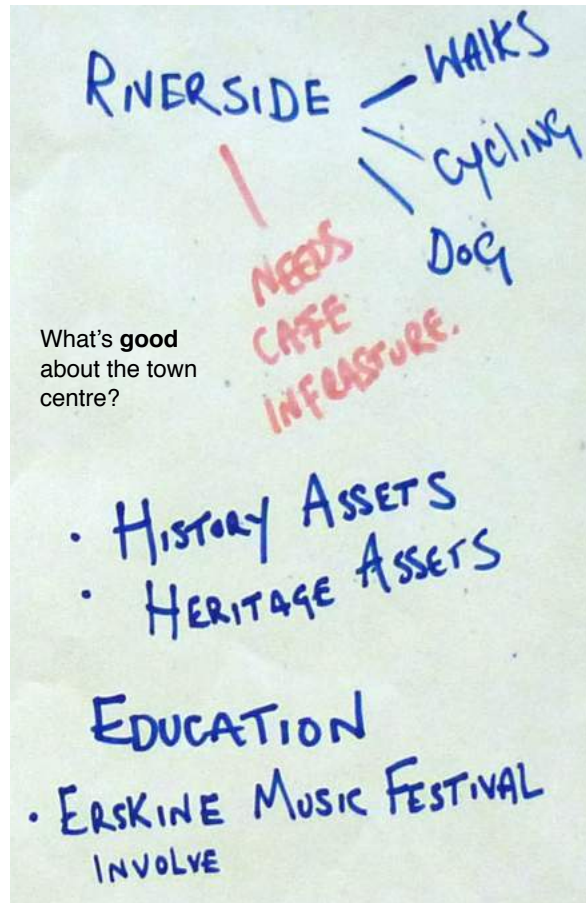 RIVERSIDE
WALKS
CYCLING
DOG
NEEDS
CAFE
INFRASTURE.
What's good
about the town
centre?
• HISTORY ASSETS
• HERITAGE ASSETS
EDUCATION
• ERSKINE MUSIC FESTIVAL
INVOLVE